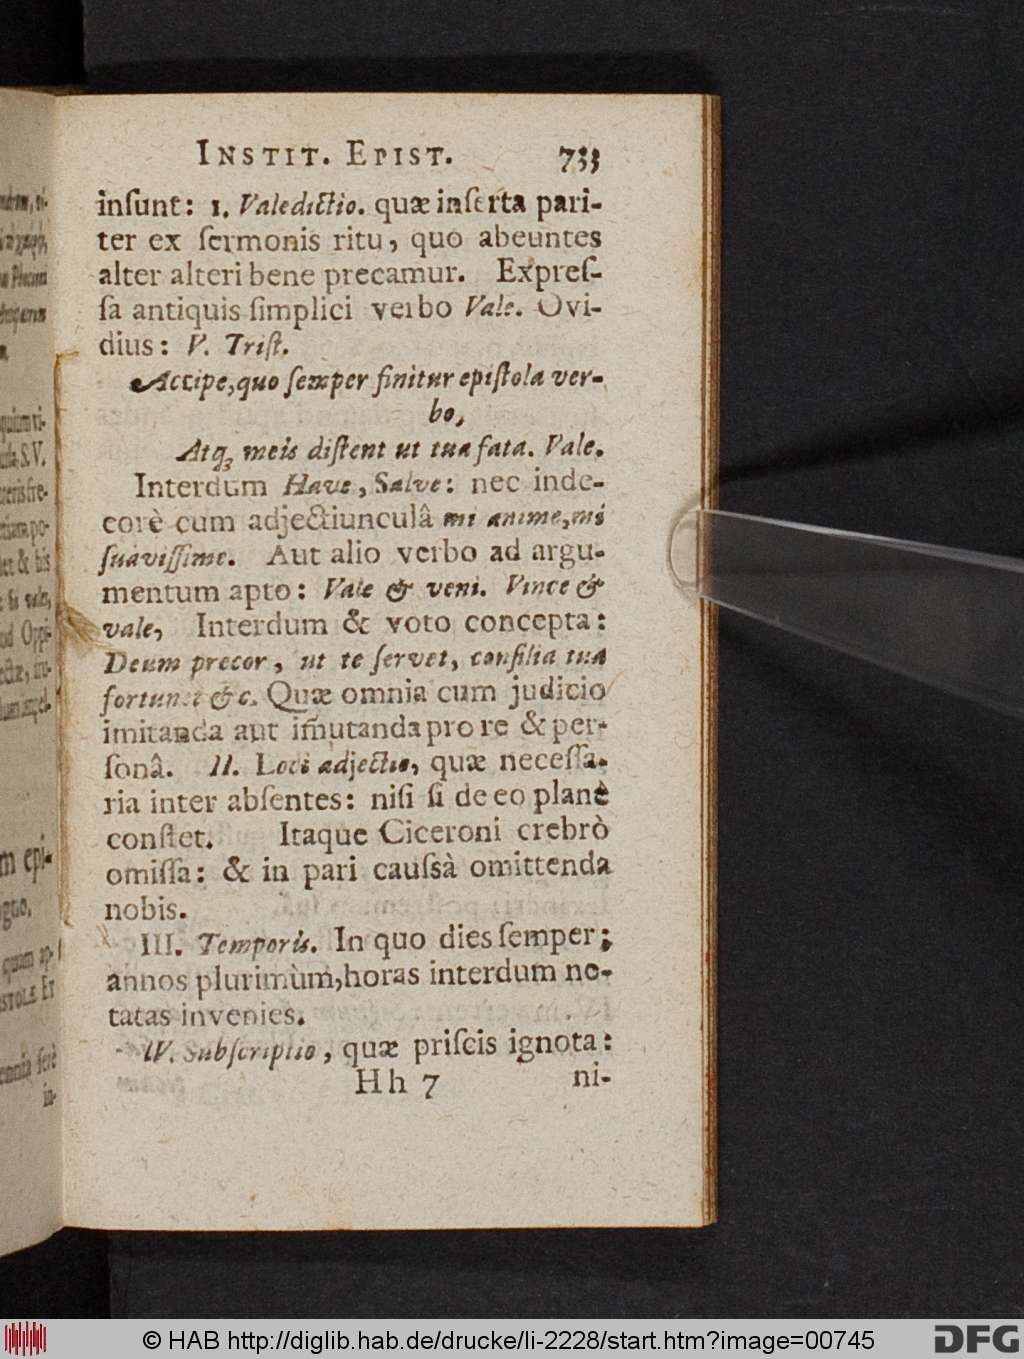 INSTIT. EPIST. 733
inſunt: 1. Valedictio. quæ inſerta pari-
ter ex ſermonis ritu, quo abeuntes
alter alteri bene precamur. Expreſ-
ſa antiquis ſimplici verbo Vale. Ovi-
dius: V. Triſt.
Accipe, quo ſemper finitur epiſtola ver-
bo,
Atq; meis diſtent ut tua fata. Vale.
Interdum Have, Salve: nec inde-
corè cum adjectiunculâ mi anime, mi
ſuaviſſime. Aut alio verbo ad argu-
mentum apto: Vale & veni. Vince &
vale, Interdum & voto concepta:
Deum precor, ut te ſervet, conſilia tua
fortunet &c. Quæ omnia cum judicio
imitanda aut im̃utanda pro re & per-
ſonâ. II. Loci adjectio, quæ neceſſa-
ria inter abſentes: niſi ſi de eo planè
conſtet. Itaque Ciceroni crebrò
omiſſa: & in pari cauſsà omittenda
nobis.
III. Temporis. In quo dies ſemper;
annos plurimùm, horas interdum no-
tatas invenies.
IV. Subſcriptio, quæ priſcis ignota:
Hh 7 ni-
© HAB http://diglib.hab.de/drucke/li-2228/start.htm?image=00745
DFG